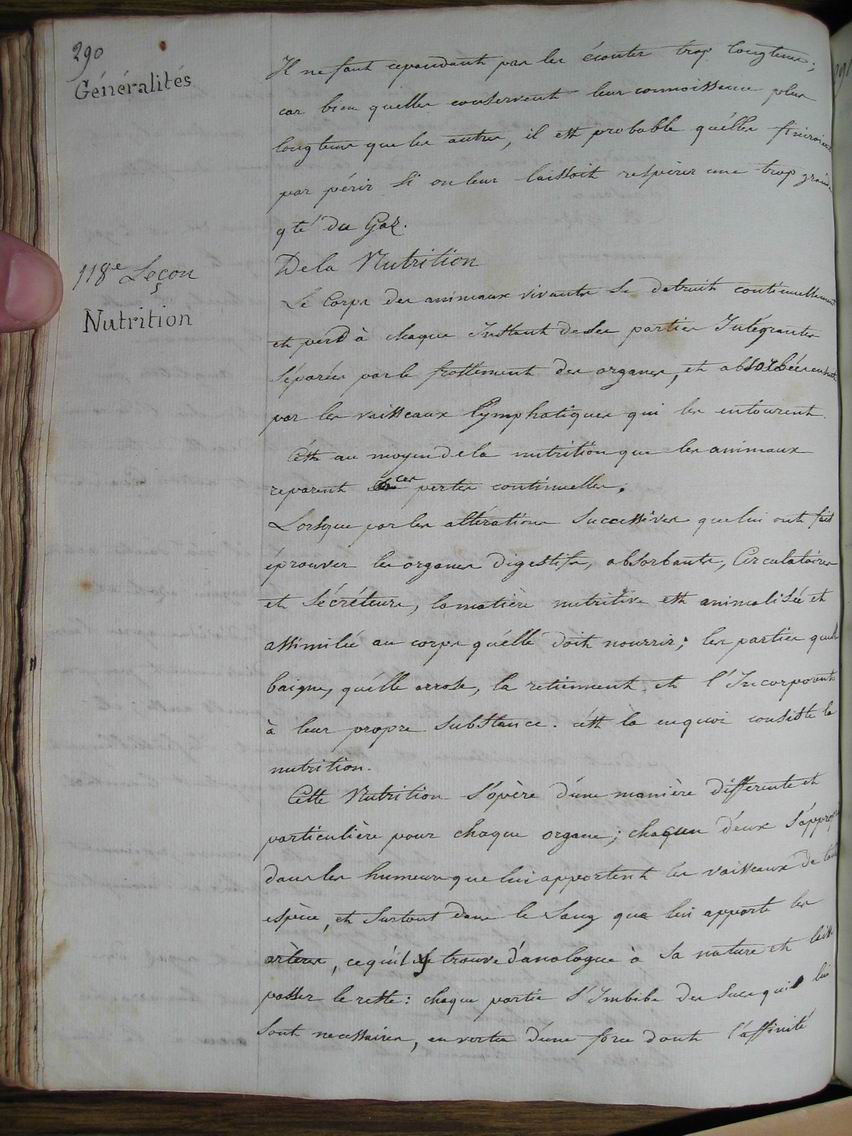 290
Généralités
Il ne faut cependant pas les écouter trop longtems;
car bien quelles conservent leur connoissance plus
longtems que les autres, il est probable qu'elles finiroient
par périr si on leur laissoit respirer une trop grande
qté du Gaz.
118e Leçon
Nutrition
De la Nutrition
Le Corps des animaux vivants se detruit continuellement
et perd à chaque Instant de ses parties Intégrantes
séparées par le frottement des organes, et absorbées ensuite
par les vaisseaux lymphatiques qui les entourent.
C'est au moyen de la nutrition que les animaux
reparent ces pertes continuelles.
Lorsque par les altérations successives que lui ont fait
éprouver les organes digestifs, absorbants, Circulatoires
et sécréteurs, la matière nutritive est animalisée et
assimilée au corps qu'elle doit nourrir; les parties quelle
baigne, qu'elle arrose, la retiennent et l'Incorporent
à leur propre substance. c'est là en quoi consiste la
nutrition.
Cette Nutrition s'opère d'une manière différente et
particulière pour chaque organe; chaqun d'eux s'approprie
dans les humeurs que lui apportent les vaisseaux de toute
espèce, et surtout dans le sang que lui apporte les
artères, ce qu'il y trouve d'analogue à sa nature et laisse
passer le reste: chaque partie s'Imbibe des sucs qui lui
sont necessaires, en vertu d'une force dont l'affinité